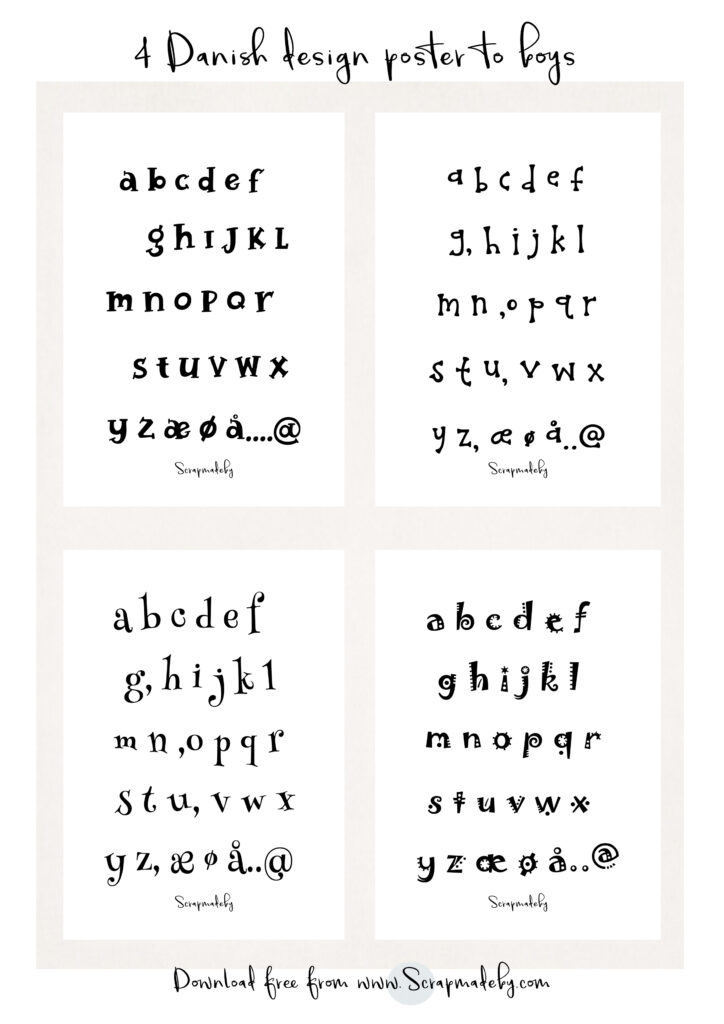 4 Danish design poster to boys
a b c d e f
g h I J K L
m n o P Q r
s t u v w x
y z æ ø å....@
Scrapmadeby
a b c d e f
g, h i j k l
m n ,o p q r
s t u, v w x
y z, æ ø å..@
Scrapmadeby
a b c d e f
g, h i j k l
m n ,o p q r
s t u, v w x
y z, æ ø å..@
Scrapmadeby
a b c d e f
g h i j k l
m n o p q r
s t u v w x
y z æ ø å..@
Scrapmadeby
Download free from www.Scrapmadeby.com